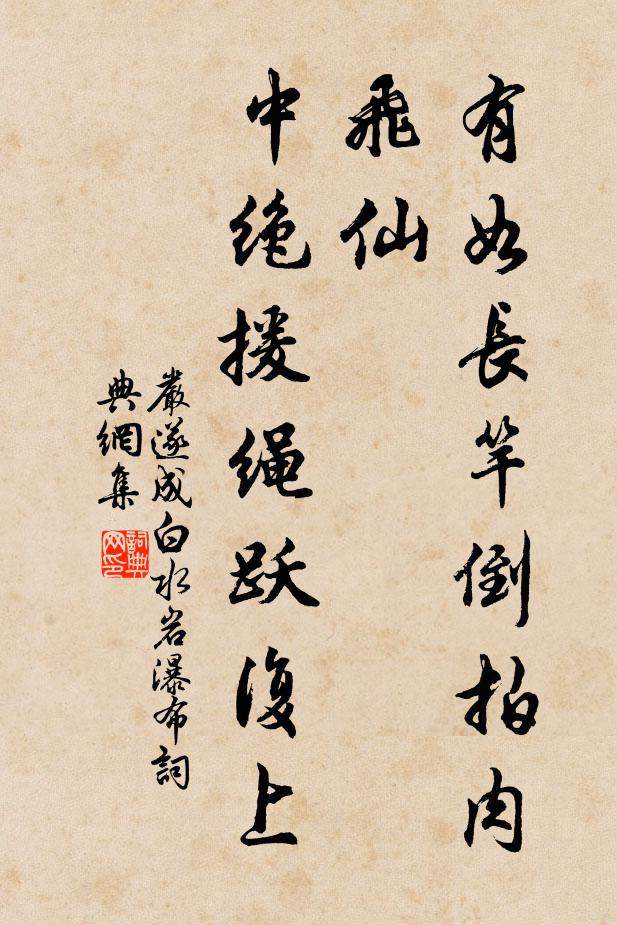 有如長竿倒拍肉
飛仙
中绝援绳跃復上
嚴遂成白水岩瀑布詞
典網集
詞典
网印